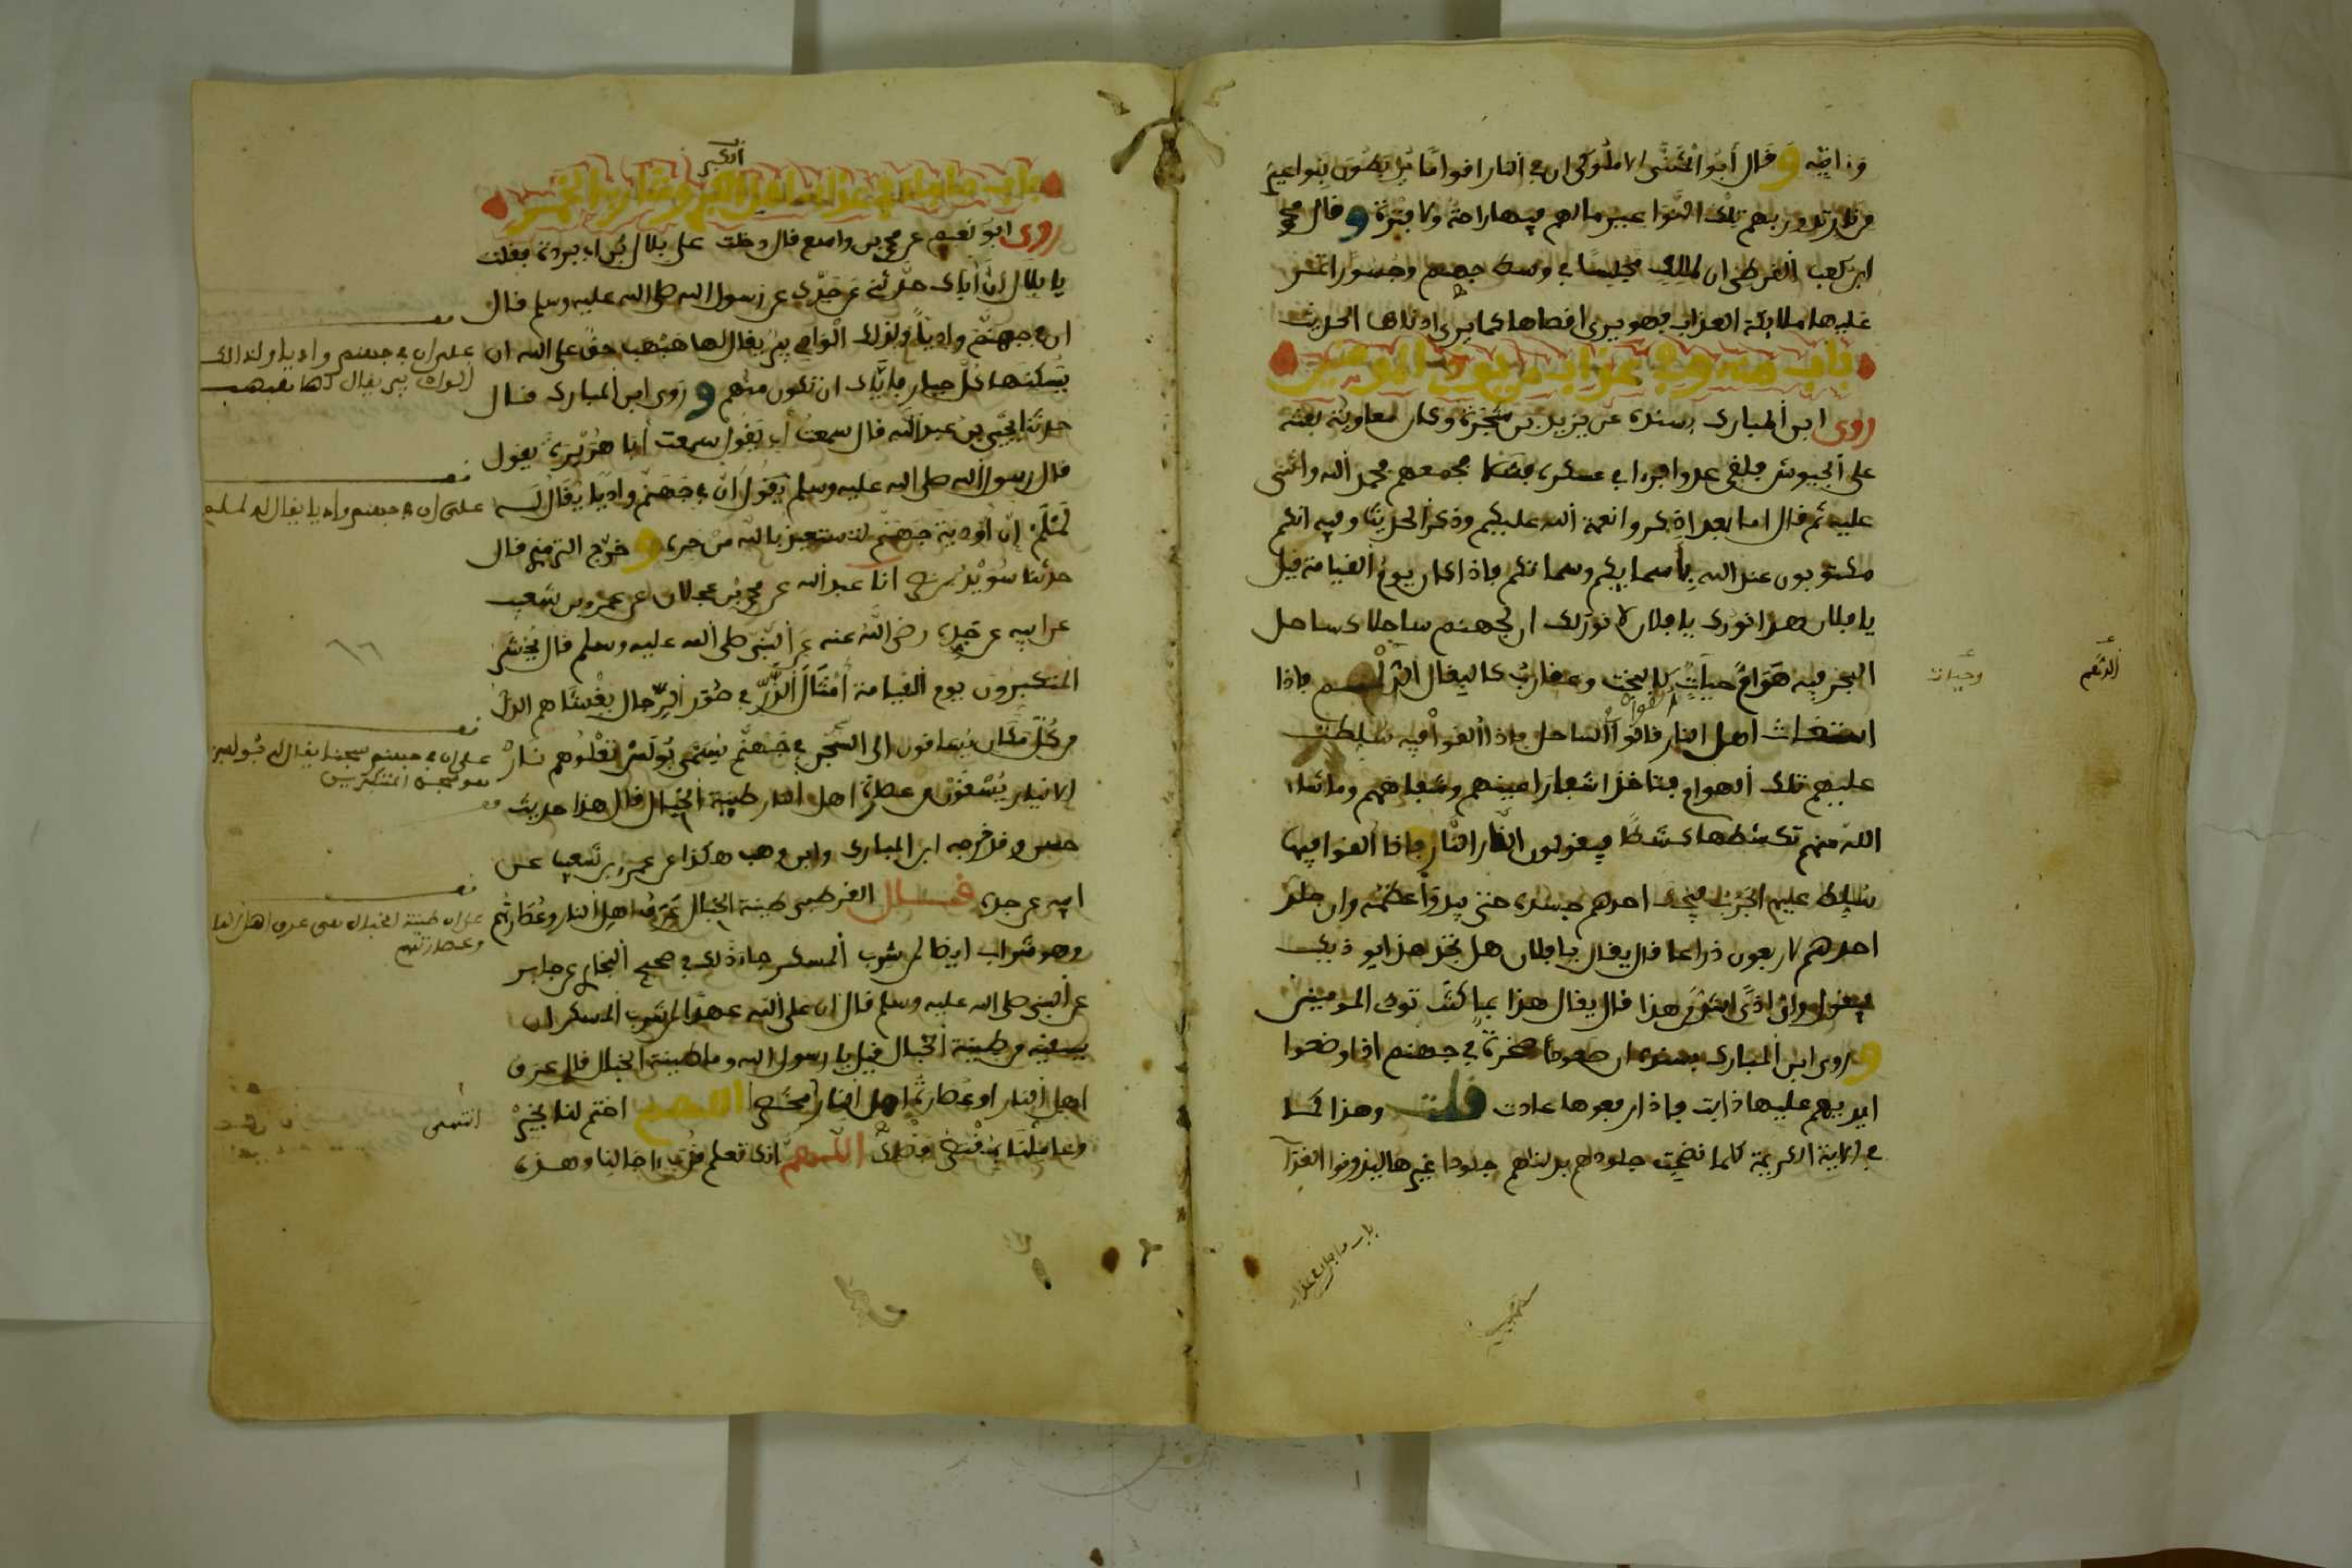 وزاغيه وقال أبو المثنى الاملوكى ان في النار اقواما يربطون بنواعير
من نار تدور بهم تلك النواعير مالهم فيها راحة ولا فترة وقال محمد
ابن كعب القرظي ان لملك مجلسا في وسط جهنم وجسورا تمر
عليها ملايكة العذاب فهو يرى اقصاها كما يرى ادناها الحديث
باب منه وفي عذاب من يوذي المومنين
روى ابن المبارك بسنده عن يزيد بن شجرة وكان معاوية بعثه
على الجيوش فلقي عدوا فرءا في عسكره فشلا فجمعهم فحمد الله واثنى
عليه ثم قال اما بعد اذكروا نعمة الله عليكم وذكر الحديث وفيه انكم
مكتوبون عند الله بأسمايكم وسماتكم فاذا كان يوم القيامة قيل
يا فلان هذا نورك يا فلان لا نور لك ان لجهنم ساحلا كساحل
البحر فيه هوام حيات كالبخت وعقارب كالبغال الدلم فاذا
استغاث اهل النار قالوا الساحل فاذا القوا فيه سلطت
عليهم تلك الهوام فتاخذ اشفار اعينهم وشفاههم وما شاء
الله منهم تكشطها كشطا فيقولون النار النار فاذا القوا فيها
سلط عليهم الجرب فيحك احدهم جسده حتى يبدو عظمه وان جلد
احدهم لاربعون ذراعا قال يقال يا فلان هل تجد هذا يوذيك
فيقول واي اذى اشد من هذا قال يقال هذا بما كنت توذي المومنين
وروى ابن المبارك بسنده ان صعودا صخرة في جهنم اذا وضعوا
ايديهم عليها ذابت فاذا رفعوها عادت قلت وهذا كما
في الاية الكريمة كلما نضجت جلودهم بدلناهم جلودا غيرها ليذوقوا العذاب
وحيات
الدلم
باب ما جاء في عذاب
باب ما جاء في عذاب اهل الكبر وشارب الخمر
الكبر
روى ابو نعيم عن محمد بن واسع قال دخلت على بلال بن ابي بردة فقلت
يا بلال ان أباك حدثني عن جدك عن رسول الله صلى الله عليه وسلم قال
ان في جهنم واديا ولذلك الوادي بير يقال لها هبهب حق على الله ان
يسكنها كل جبار فاياك ان تكون منهم وروى ابن المبارك قال
حدثنا يحيى بن عبيد الله قال سمعت أبي يقول سمعت أبا هريرة يقول
قال رسول الله صلى الله عليه وسلم يقول ان في جهنم واديا يقال له
لملم ان أودية جهنم لتستعيذ بالله من حره وخرج الترمذي قال
حدثنا سويد بن نصر انا عبد الله عن محمد بن عجلان عن عمرو بن شعيب
عن ابيه عن جده رضي الله عنه عن النبي صلى الله عليه وسلم قال يحشر
المتكبرون يوم القيامة أمثال الذر في صور الرجال يغشاهم الذل
من كل مكان يساقون الى السجن في جهنم يسمى بولس تعلوهم نار
الانيار يسقون من عصارة اهل النار طينة الخبال قال هذا حديث
حسن وقد خرجه ابن المبارك وابن وهب هكذا عن عمرو بن شعيب عن
ابيه عن جده قال القرطبي طينة الخبال عرق اهل النار وعصارتهم
وهو شراب ايضا لمن شرب المسكر جاء ذلك في صحيح البخاري عن جابر
عن النبي صلى الله عليه وسلم قال ان على الله عهدا لمن شرب المسكر ان
يسقيه من طينة الخبال قيل يا رسول الله وما طينة الخبال قال عرق
اهل النار او عصارة اهل النار اللهم اختم لنا بخير
وعاملنا بمقتضى فضلك اللهم انك تعلم قرب اجالنا وهذه
على ان في جهنم واديا ولذالك
الواد بير يقال لها هبهب
على ان في جهنم واديا يقال له لملم
على ان في جهنم سجنا يقال له بولس
هو سجن المتكبرين
على ان طينة الخبال هي عرق اهل النار
وعصارتهم
انتهى